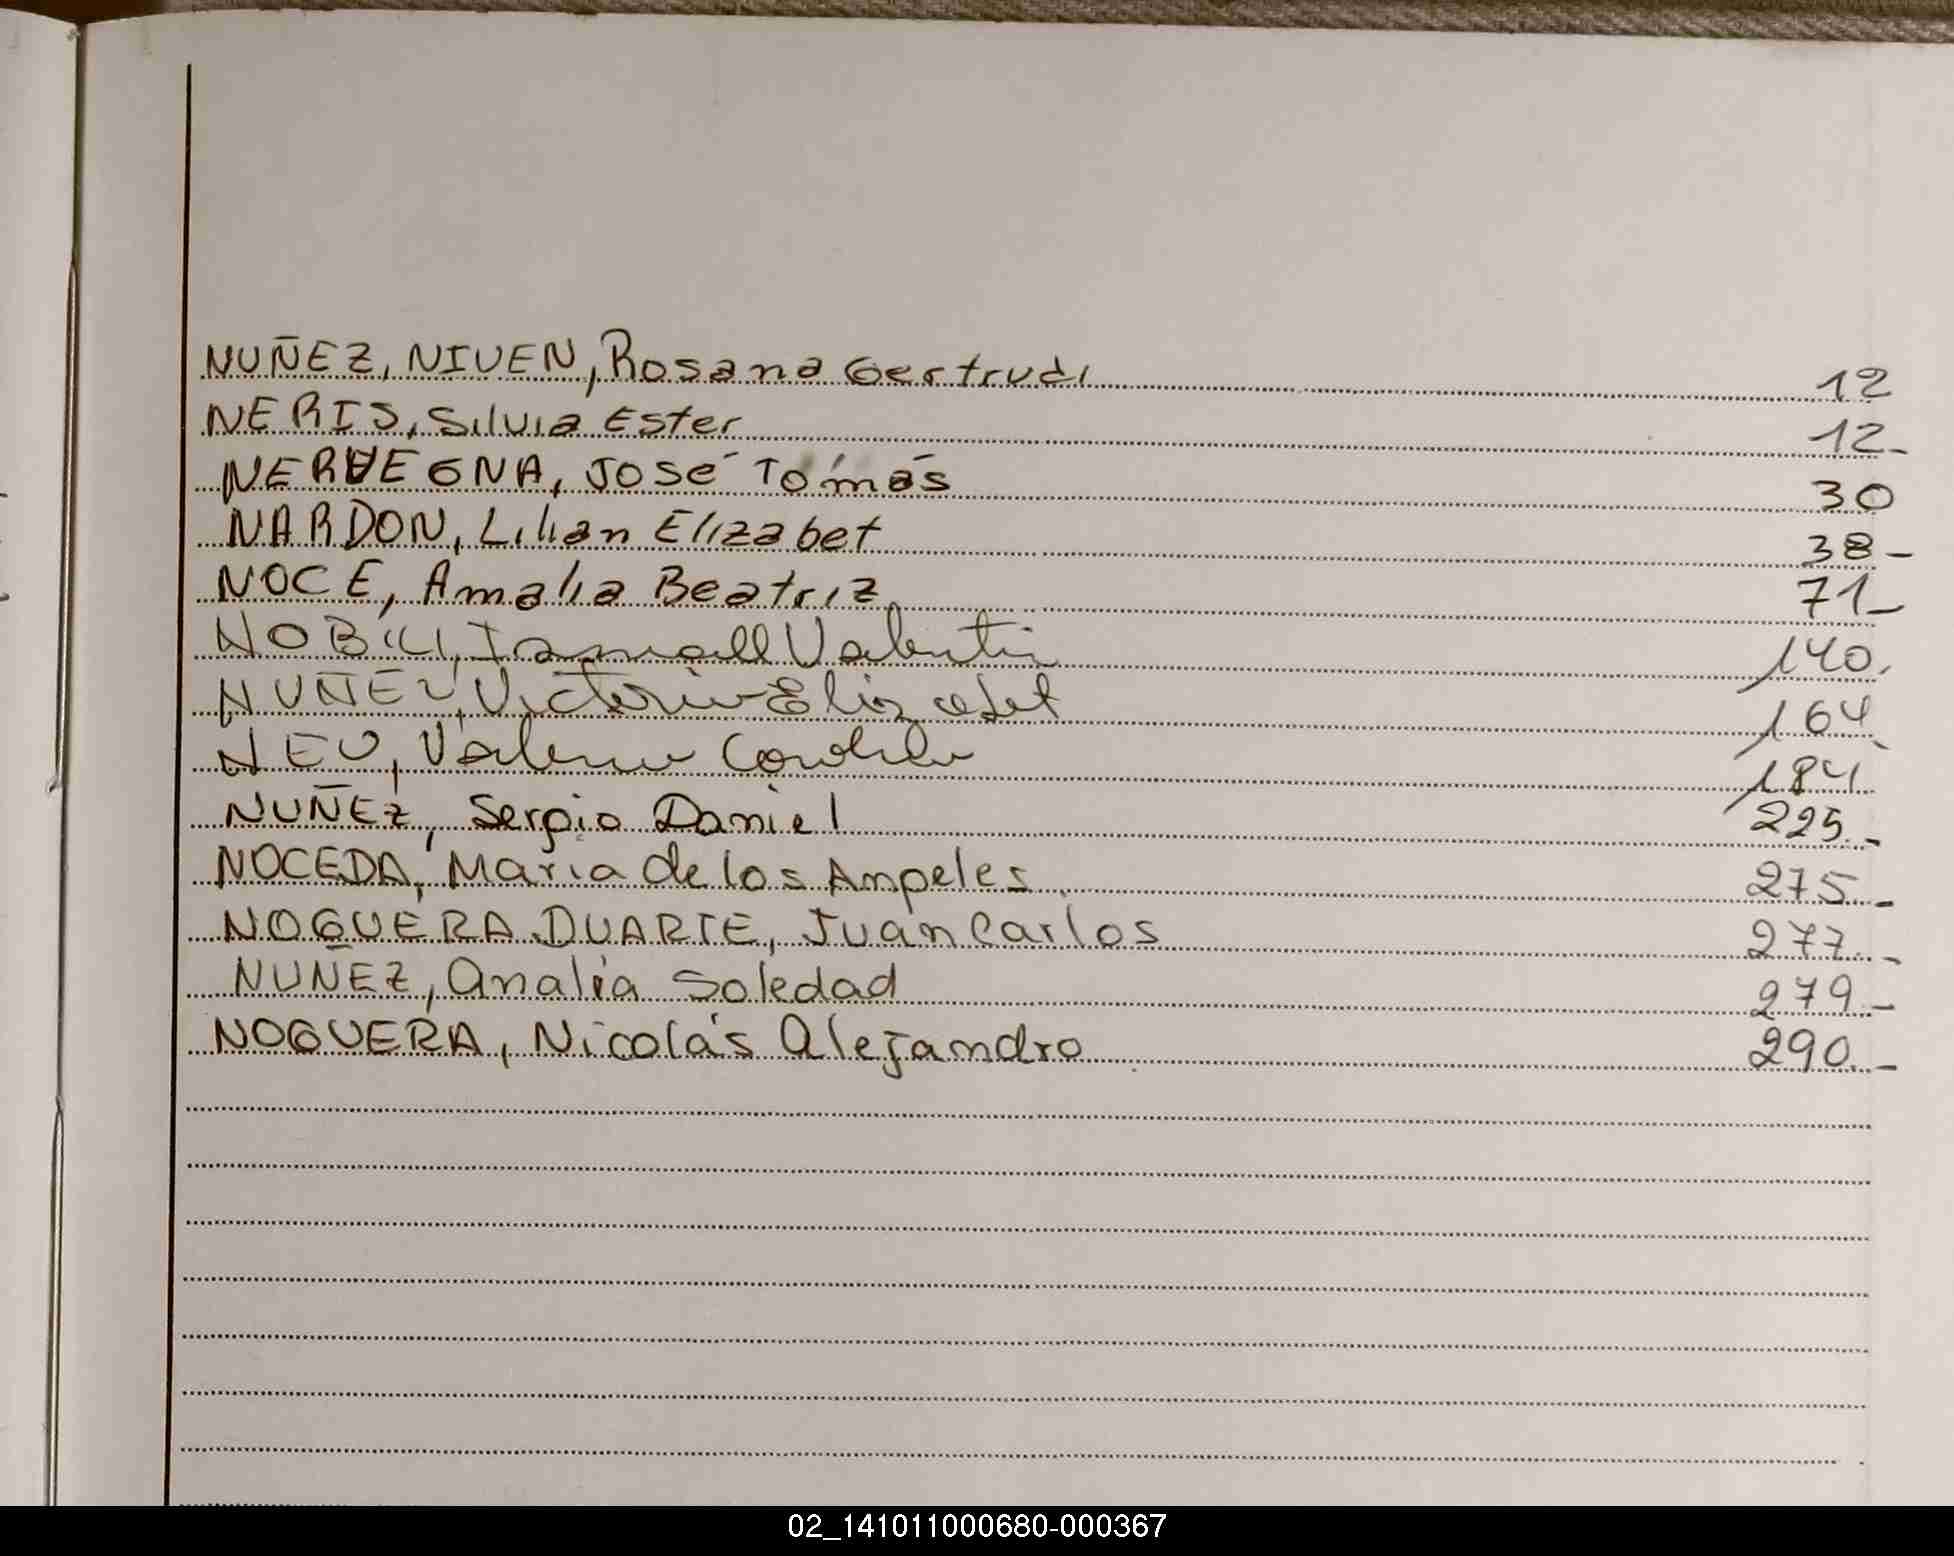 NUÑEZ, NIVEN, Rosana Gertrudi 12
NERIS, Silvia Ester 12-
NERVEGNA, José Tomás 30
NARDON, Lilian Elizabet 38-
NOCE, Amalia Beatriz 71-
NOBILI, Valentin 140
NUÑEZ, Victoria Elizabet 164
NEU, Valeria 184
NUÑEZ, Sergio Daniel 225.-
NOCEDA, Maria de los Angeles 275.-
NOGUERA DUARTE, Juan Carlos 277.-
NUÑEZ, Analia Soledad 279.-
NOGUERA, Nicolás Alejandro 290.-
02_141011000680-000367